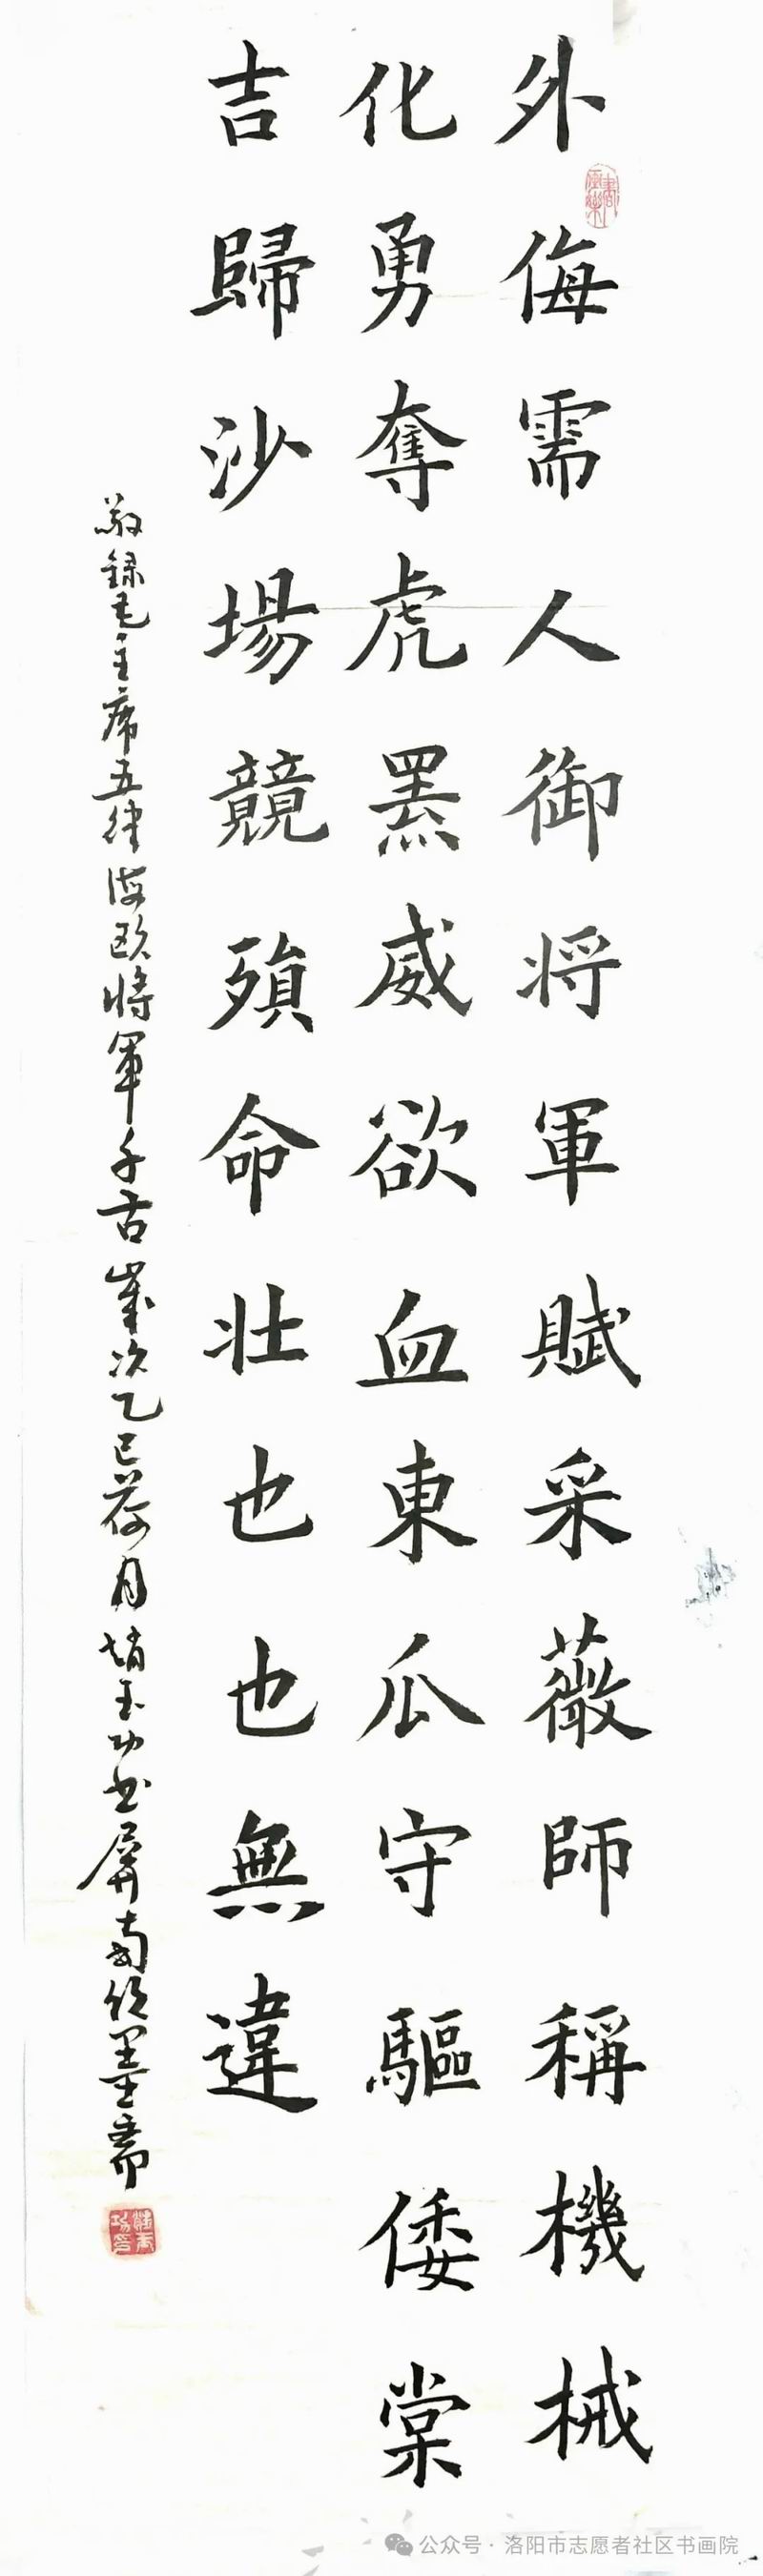 外侮需人御将軍賦采薇師稱機械
化勇奪虎羆威欲血東瓜守驅倭棠
吉歸沙場競殞命壯也也無違
敬録毛主席五律海鷗将軍千古歲次乙巳荷月趙玉功書屏南臥墨齋
公众号·洛阳市志愿者社区书画院